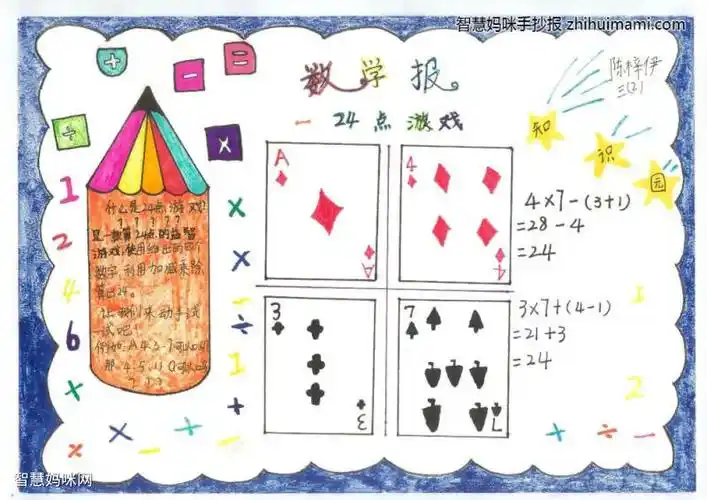 智慧妈咪手抄报 zhihuimami.com
数学报
陈梓伊
三(2)
一 24点游戏
知
识
园
什么是24点游戏?
是一款算24点的益智
游戏,使用给出的四个
数字,利用加减乘除
算出24。
让我们来动手试
一试吧!
例如:A 4 3 7可以
那 4、5、
A
A
4
4
3
3
7
7
4×7-(3+1)
=28-4
=24
3×7+(4-1)
=21+3
=24
÷
+
-
=
×
1
2
4
6
+
×
×
-
+
×
×
-
÷
1
+
1
2
+
÷
-
智慧妈咪网